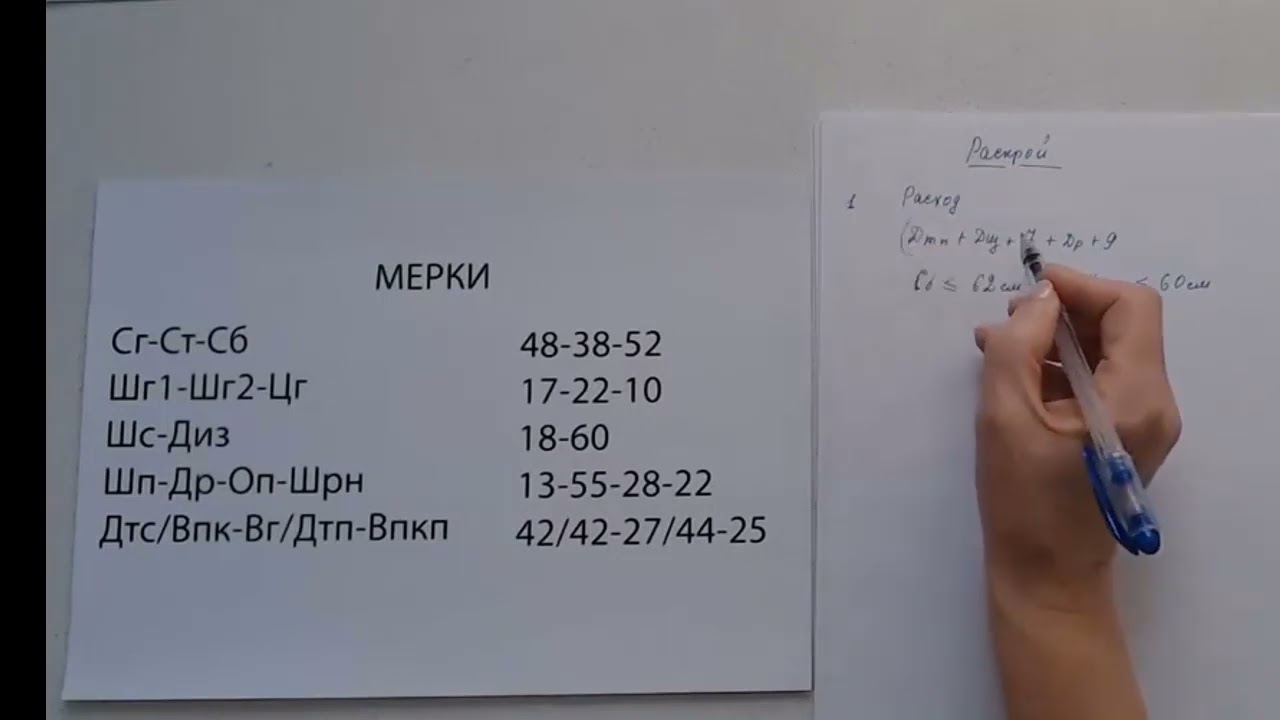 МЕРКИ
Сг-Ст-Сб 48-38-52
Шг1-Шг2-Цг 17-22-10
Шс-Диз 18-60
Шп-Др-Оп-Шрн 13-55-28-22
Дтс/Впк-Вг/Дтп-Впкп 42/42-27/44-25
Раскрой
1 Расход
(Дтп + Ди + + Др + 9
Сб ≤ 62см ≤ 60см